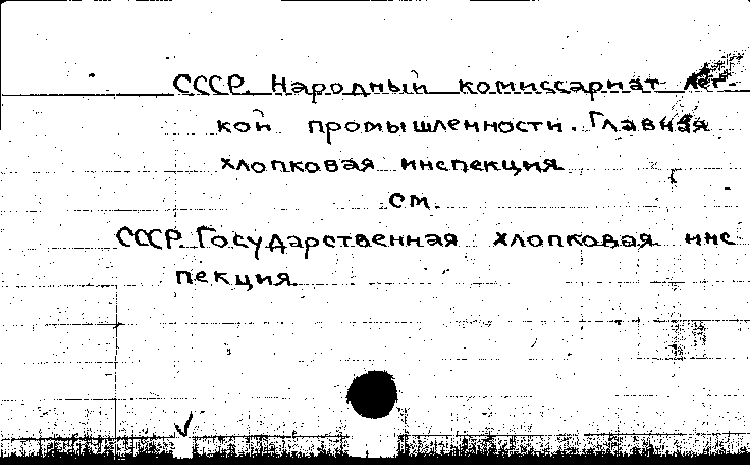 СССР. Народный комиссариат лег-
кой промышленности. Главная
хлопковая инспекция
см.
СССР. Государственная хлопковая инс
пекция.